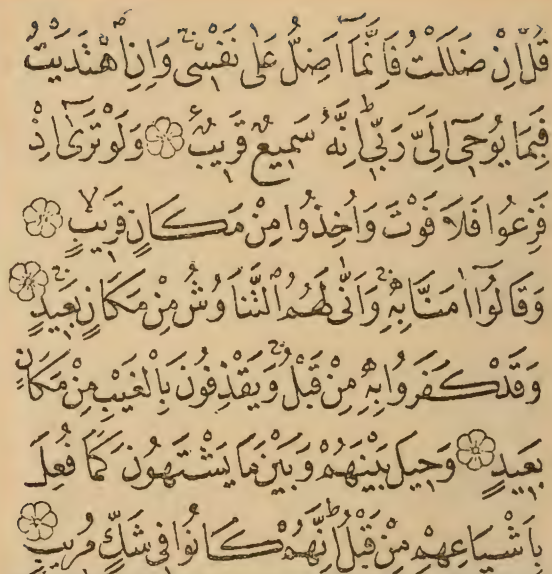 قُلْ اِنْ ضَلَلْتُ فَاِنَّمَٓا اَضِلُّ عَلٰى نَفْسٖى وَاِنِ اهْتَدَيْتُ
فَبِمَا يُوحٖٓى اِلَىَّ رَبّٖى اِنَّهُ سَمٖيعٌ قَرٖيبٌ ۝ وَلَوْ تَرٰٓى اِذْ
فَزِعُوا فَلَا فَوْتَ وَاُخِذُوا مِنْ مَكَانٍ قَرٖيبٍ ۝
وَقَالُٓوا اٰمَنَّا بِهٖ وَاَنّٰى لَهُمُ التَّنَاوُشُ مِنْ مَكَانٍ بَعٖيدٍ ۝
وَقَدْ كَفَرُوا بِهٖ مِنْ قَبْلُ وَيَقْذِفُونَ بِالْغَيْبِ مِنْ مَكَانٍ
بَعٖيدٍ ۝ وَحٖيلَ بَيْنَهُمْ وَبَيْنَ مَا يَشْتَهُونَ كَمَا فُعِلَ
بِاَشْيَاعِهِمْ مِنْ قَبْلُ اِنَّهُمْ كَانُوا فٖى شَكٍّ مُرٖيبٍ ۝